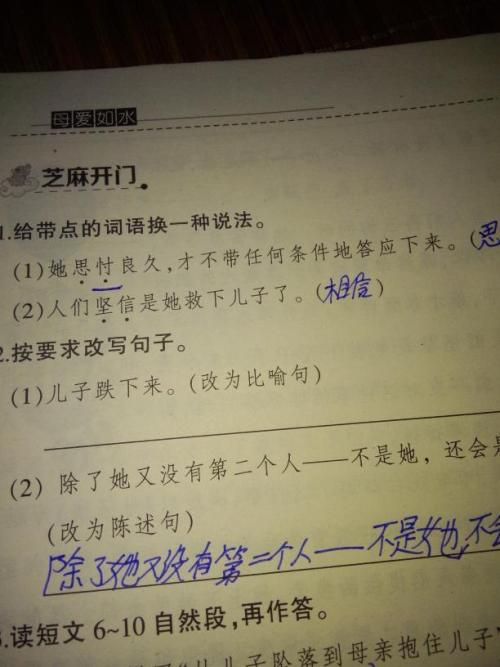 母爱如水
芝麻开门
1.给带点的词语换一种说法。
(1)她思忖良久,才不带任何条件地答应下来。(思
(2)人们坚信是她救下儿子了。(相信)
2.按要求改写句子。
(1)儿子跌下来。(改为比喻句)
(2) 除了她又没有第二个人——不是她，还会是
(改为陈述句)
除了她又没有第二个人——不是她,不会
.读短文6~10自然段,再作答。
从儿子坠落到母亲抱住儿子